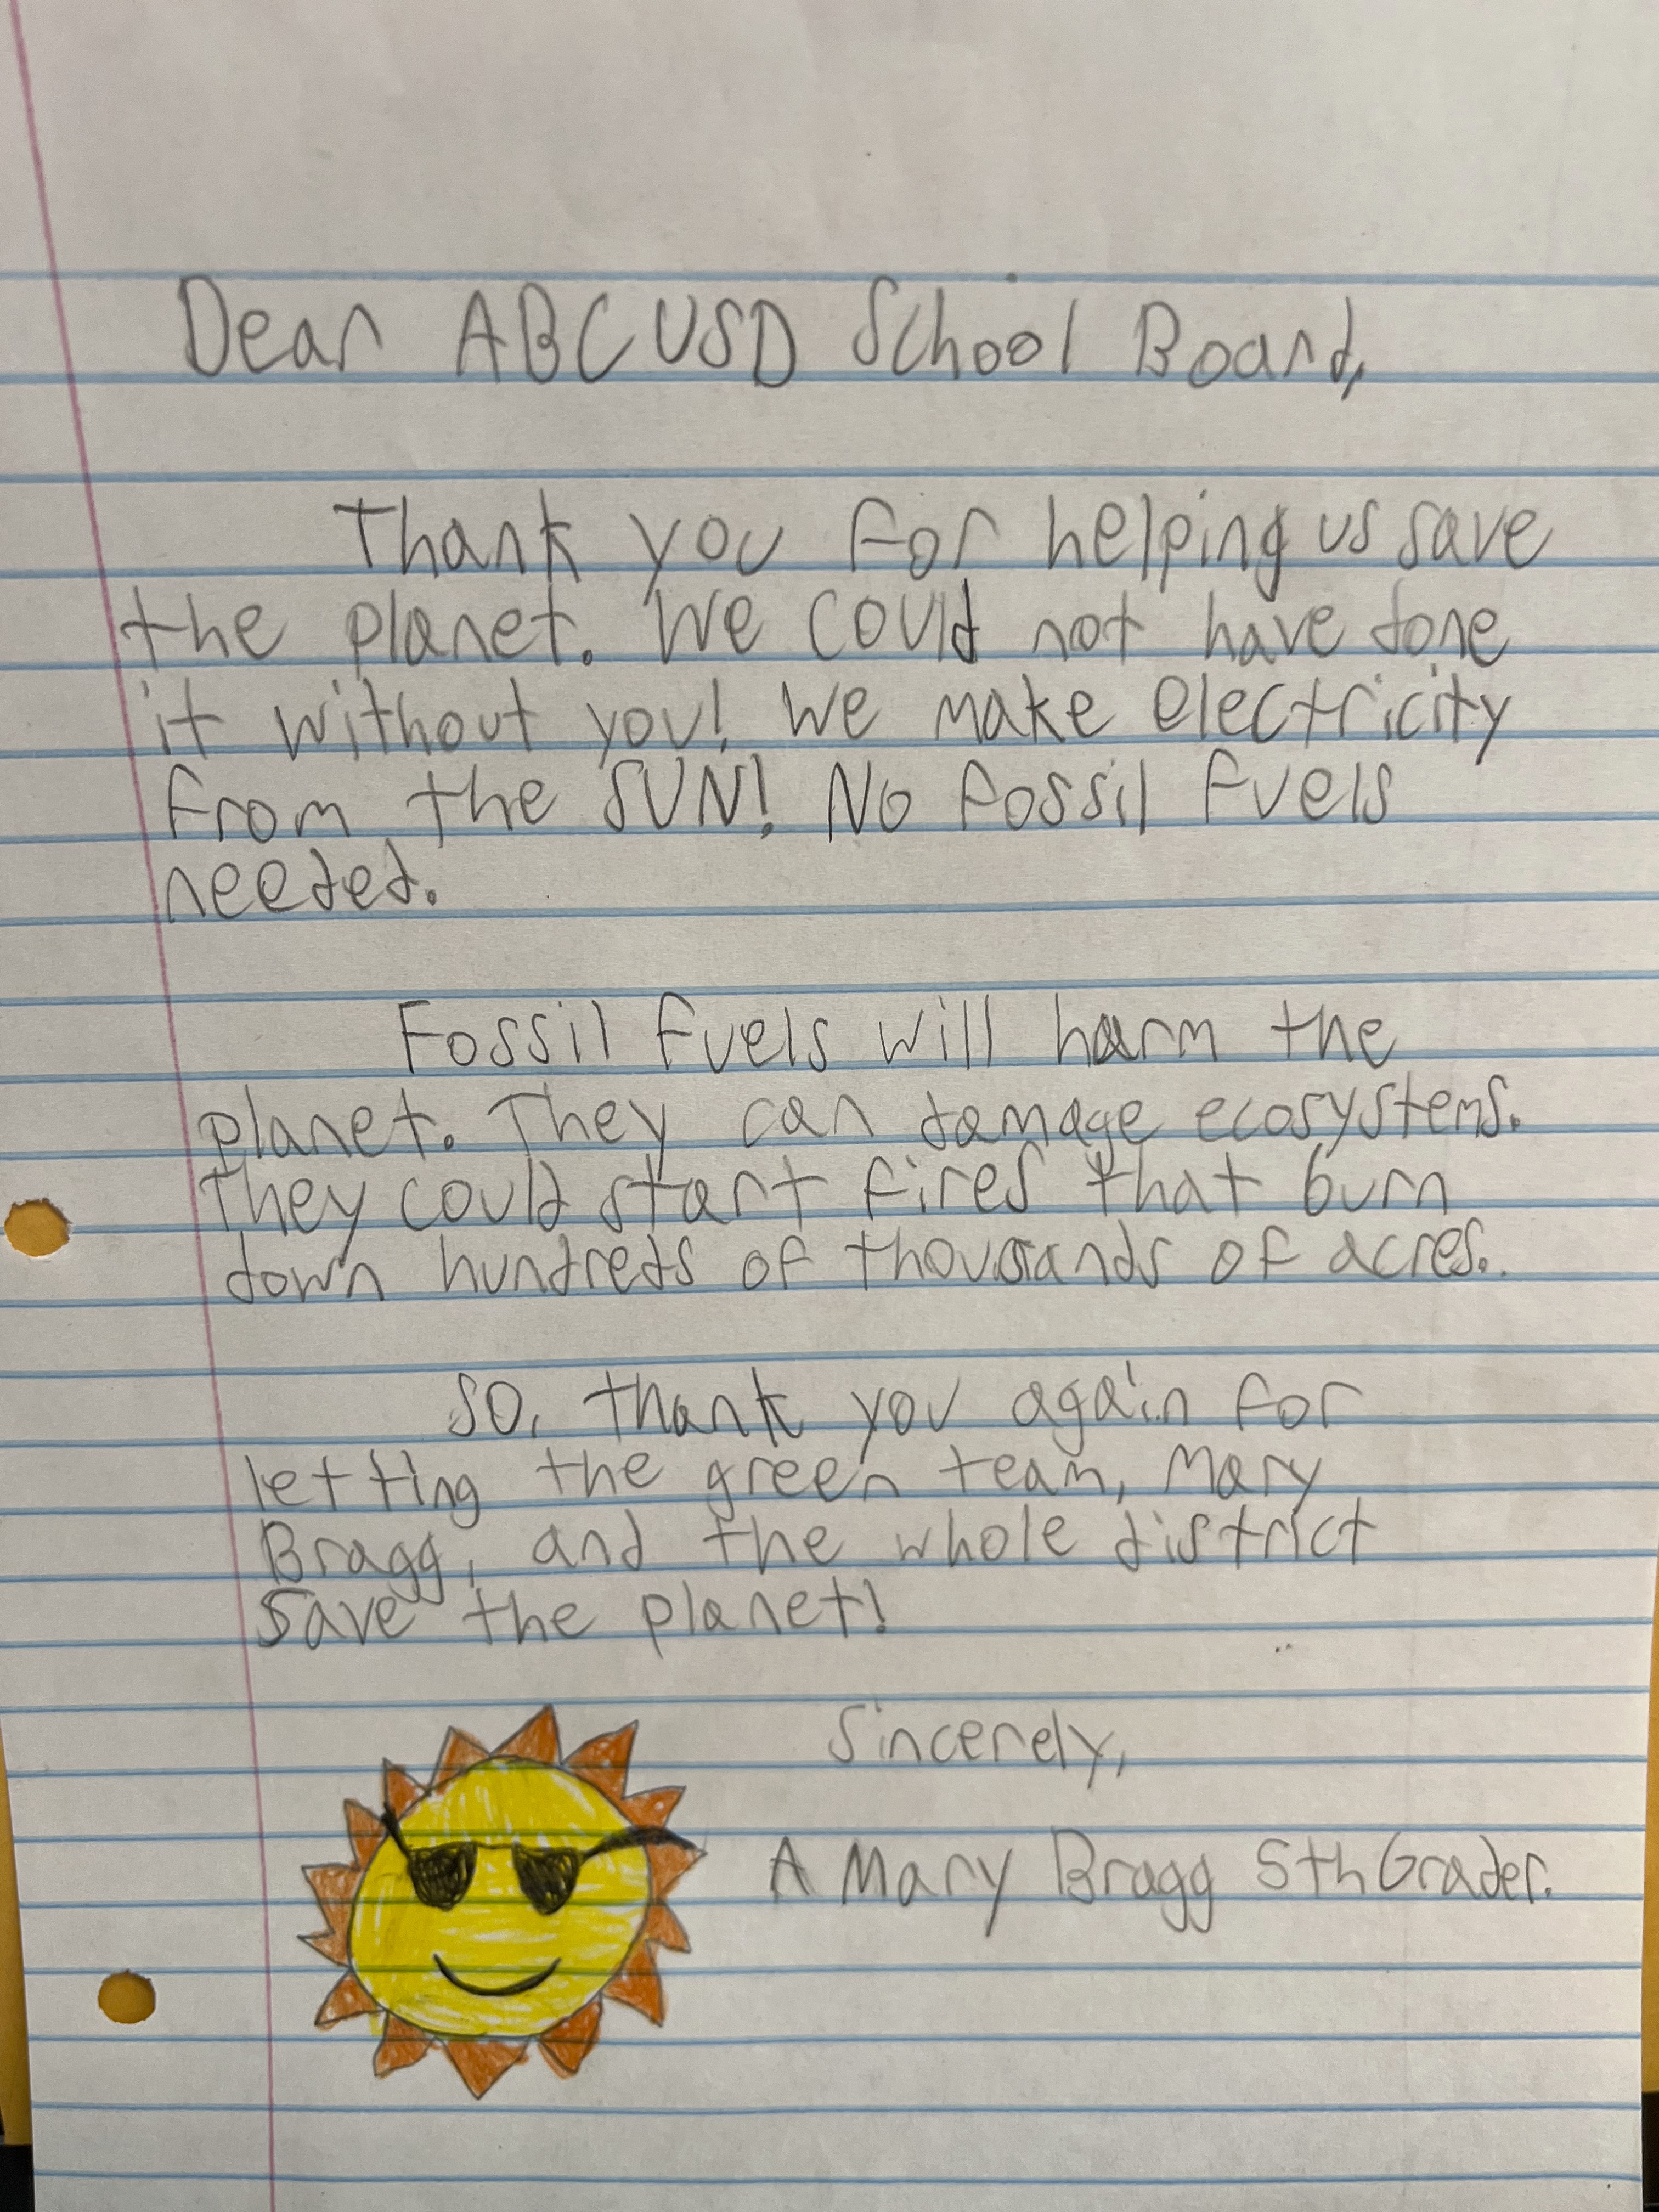 Dear ABCUSD School Board,
Thank you for helping us save
the planet. We could not have done
it without you! We make electricity
from the SUN! No fossil fuels
needed.
Fossil fuels will harm the
planet. They can damage ecosystems.
They could start fires that burn
down hundreds of thousands of acres.
So, thank you again for
letting the green team, Mary
Bragg, and the whole district
save the planet!
Sincerely,
A Mary Bragg 5th Grader.